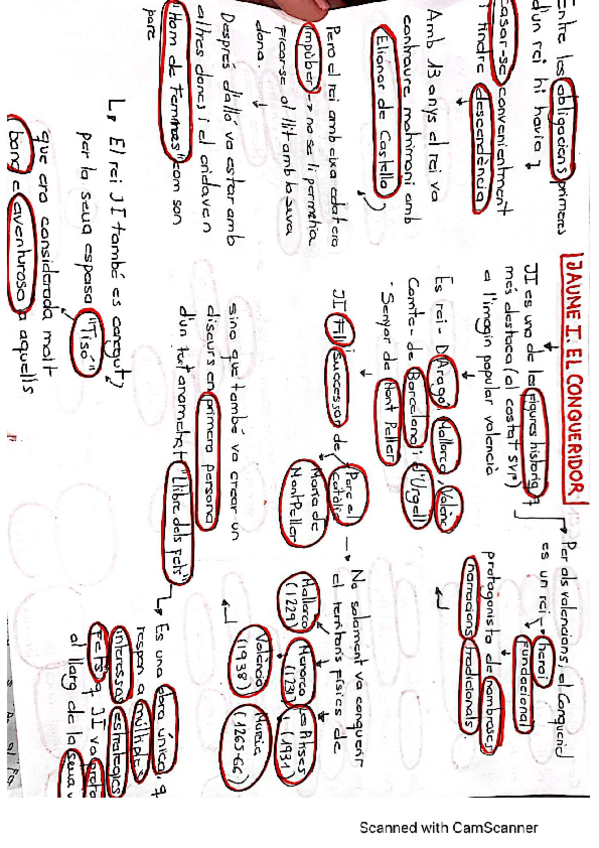 JAUME I. EL CONQUERIDOR
JI es una de les figures històriq
més destaca (al costat SVF)
a l'imagin popular valencià
Es rei - D'Aragó, Mallorca, Valènc
Comte - de Barcelona i d'Urgell
· Senyor de Mont Peller
JI Fill i
successor de
Pere el
Catòlic
Maria de
MontPeller
Per als valencians, el Conquerid
es un rei heroi
Fundacional
protagonista de nombroses
narracions tradicionals
No solament va conquerir
el territoris físics de
Mallorca
(1229)
Menorca
(1231)
Les Pitises
(1931)
València
(1938)
Murcia
(1265-66)
sino que també va crear un
discurs en primera persona
d'un tot anomena't "Llibre dels fets"
Es una obra única, q
respon a múltiples
interessos estratègics
Fets q JI va
al llarg de la seua v
Entre les obligacions primeres
d'un rei hi havia
casar-se convenientment
i tindre descendència
Amb 13 anys el rei va
contraure matrimoni amb
Elionor de Castella
Pero el rei amb eixa edat era
impúber → no se li permetia
ficar-se al llit amb la seva
dona
Després d'allò va estar amb
altres dones i el
"Hom de femmes" com son
pare
El rei JI també es conegut
per la seua espasa "Tisó"
que era considerada molt
bona e aventurosa a aquells
Scanned with CamScanner